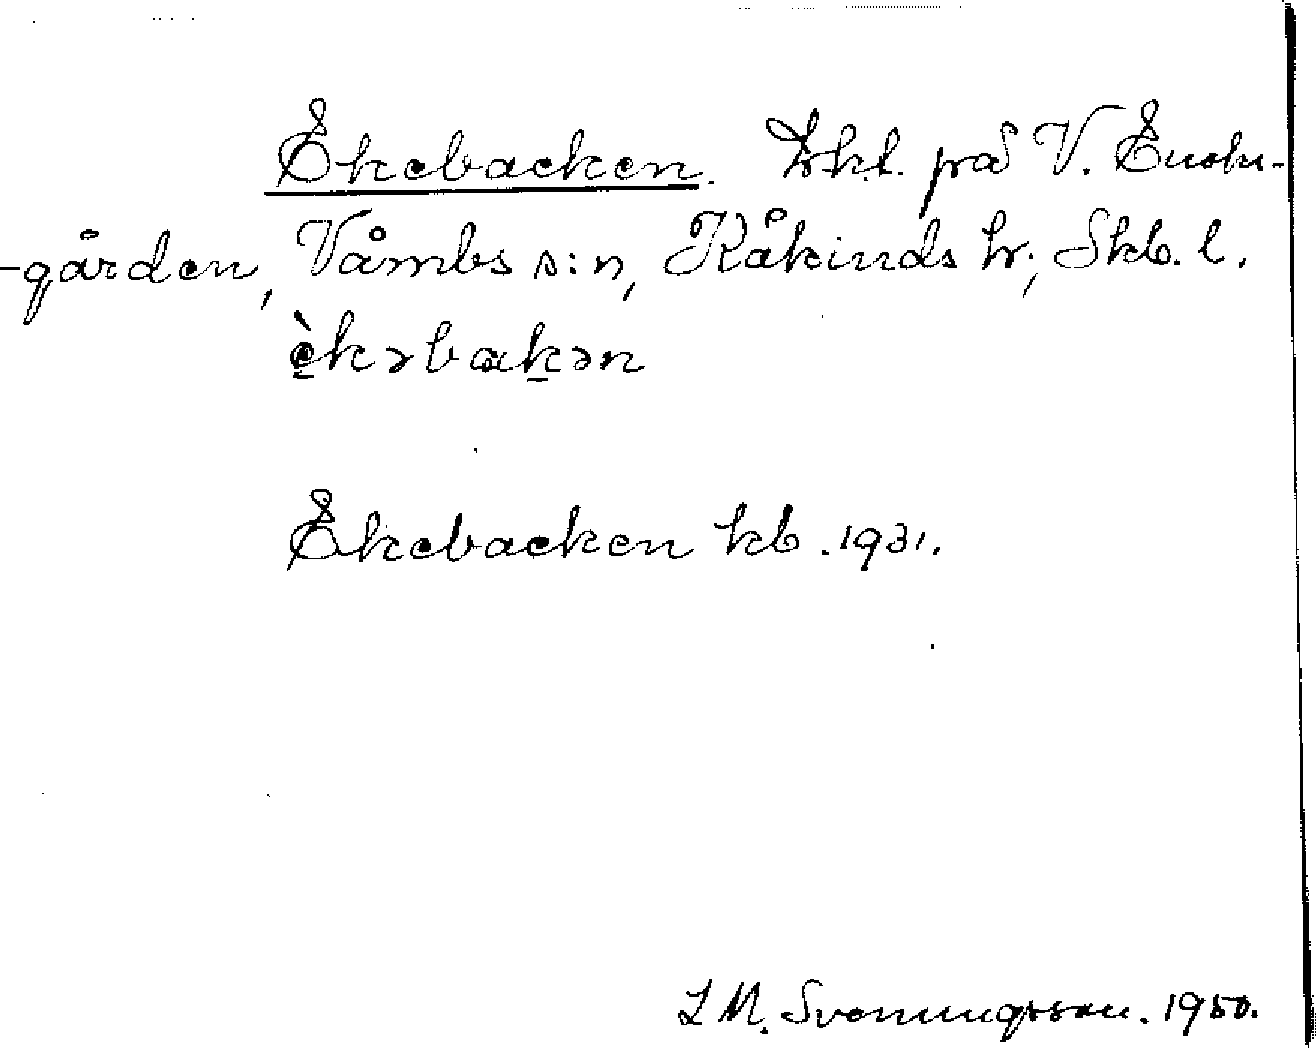 Ekebacken. Lkl. på V. Enok-
-gården, Våmbs s:n, Kåkinds hr, Skb. l.
è̱kəbaḵən
Ekebacken kb. 1931.
L M. Svenungsson. 1950.